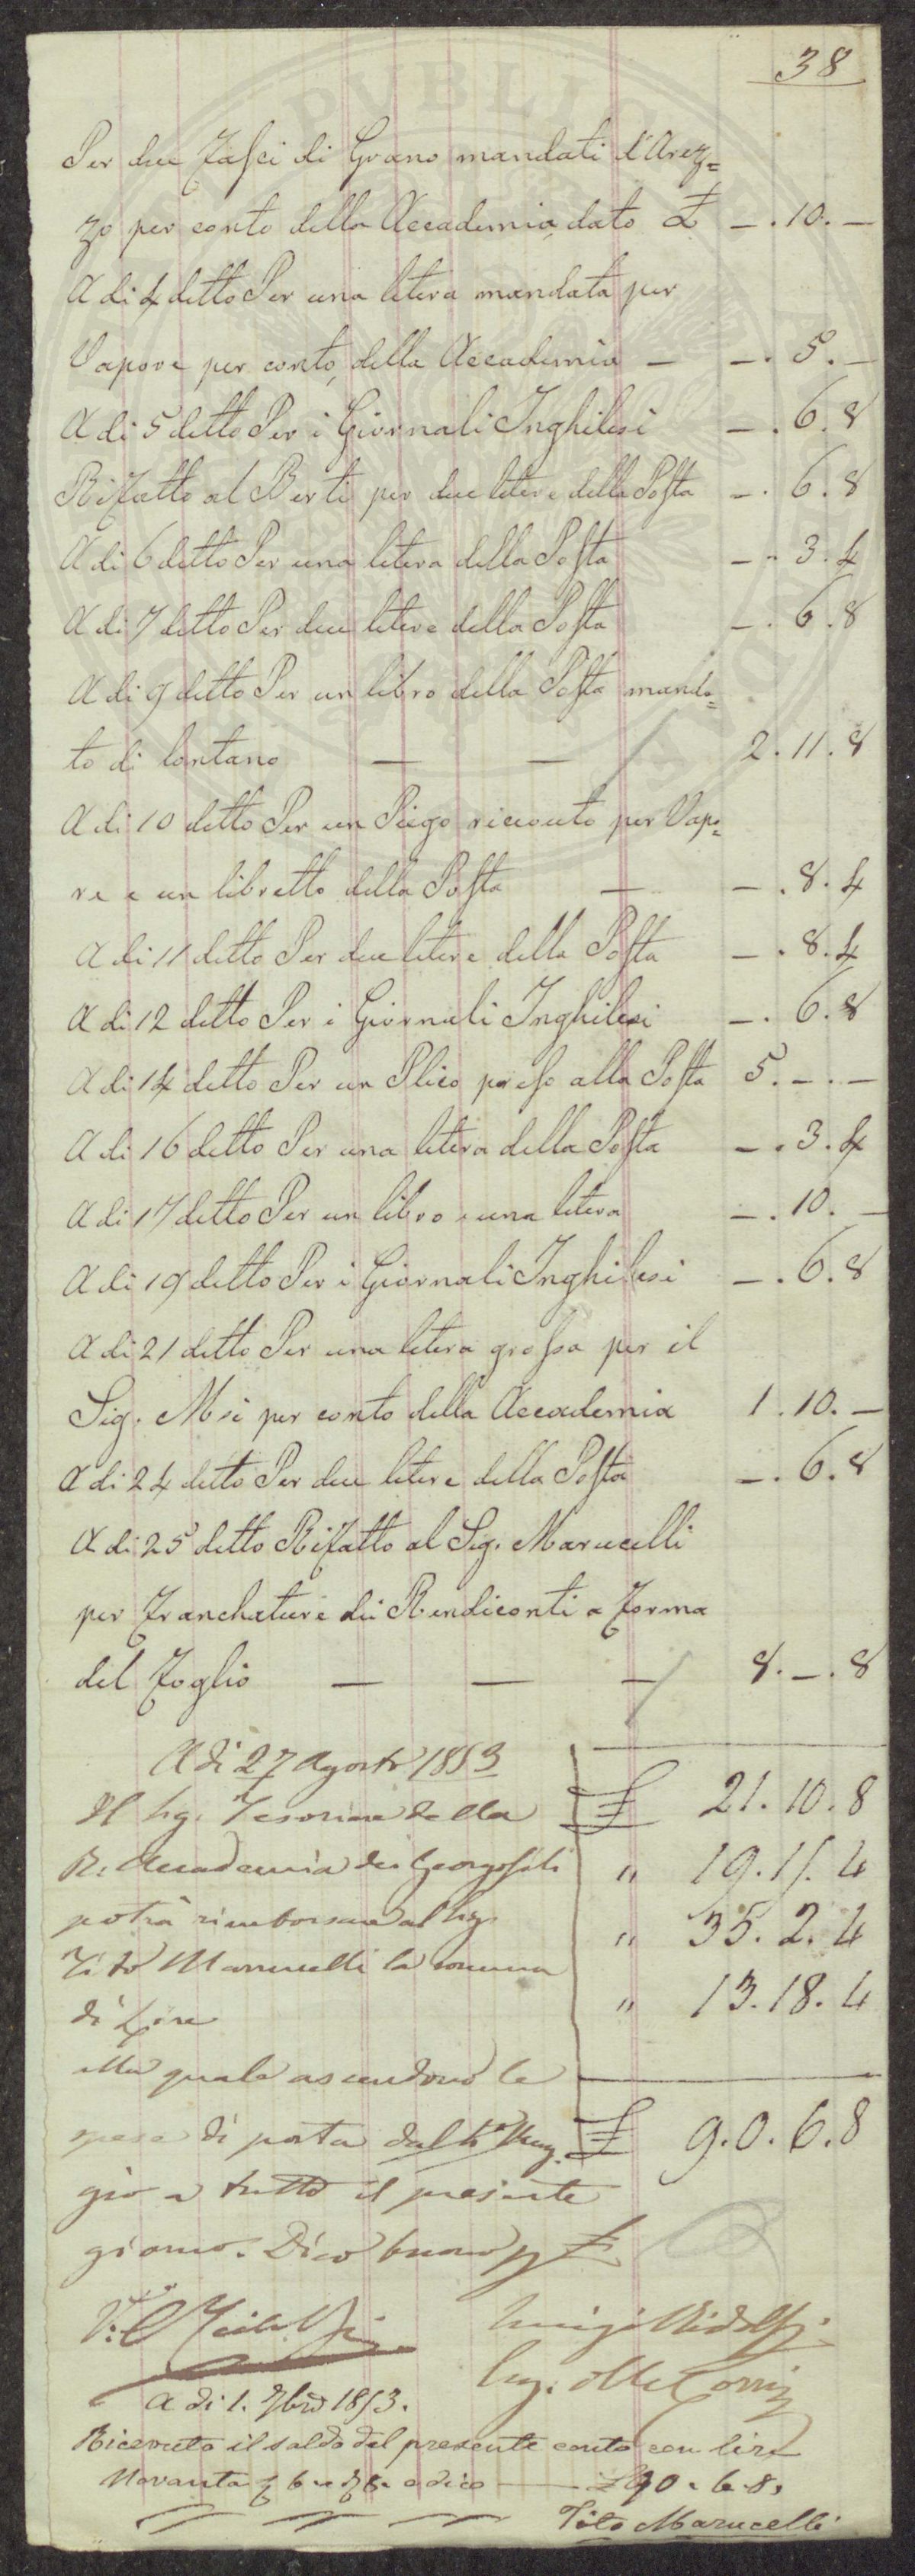 38
Per due Fasci di Grano mandati d'Arez=
zo per conto della Accademia, dato £ —. 10. —
A di 4 detto Per una letera mandata per
Vapore per conto, della Accademia — —. 5. —
A di 5 detto Per i Giornali Inghilesi —. 6. 8
Rifatto al Berti per due letere della Posta —. 6. 8
A di 6 detto Per una letera della Posta —. 3. 4
A di 7 detto Per due letere della Posta —. 6. 8
A di 9 detto Per un libro della Posta manda=
to di lontano — — 2. 11. 8
A di 10 detto Per un Piego riceuto per Vapo=
re e un libretto della Posta — —. 8. 4
A di 11 detto Per due letere della Posta —. 8. 4
A di 12 detto Per i Giornali Inghilesi —. 6. 8
A di 14 detto Per un Plico preso alla Posta 5. —. —
A di 16 detto Per una letera della Posta —. 3. 4
A di 17 detto Per un libro e una letera —. 10. —
A di 19 detto Per i Giornali Inghilesi —. 6. 8
A di 21 detto Per una letera grossa per il
Sig. Msi per conto della Accademia 1. 10. —
A di 24 detto Per due letere della Posta —. 6. 8
A di 25 detto Rifatto al Sig. Marucelli
per Franchature dii Rendiconti a Forma
del Foglio — — — 8. —. 8
A di 27 Agosto 1853
Il Sig. Tesoriere della £ 21. 10. 8
R. Accademia dei Georgofili " 19. 15. 4
potrà rimborsare al Sig. " 35. 2. 4
Tito Marucelli la somma " 13. 18. 4
di Lire
alla quale ascendono le
spese di posta dal Po Mag- £ 90. 6. 8
gio a tutto il presente
giorno. Dico buono p £
V: C Luigi Ridolfi
A di 1. 7bre 1853.
Ricevuto il saldo del presente conto con lire
Novanta 6 e 8 e dico — £ 90. 6. 8.
Tito Marucelli